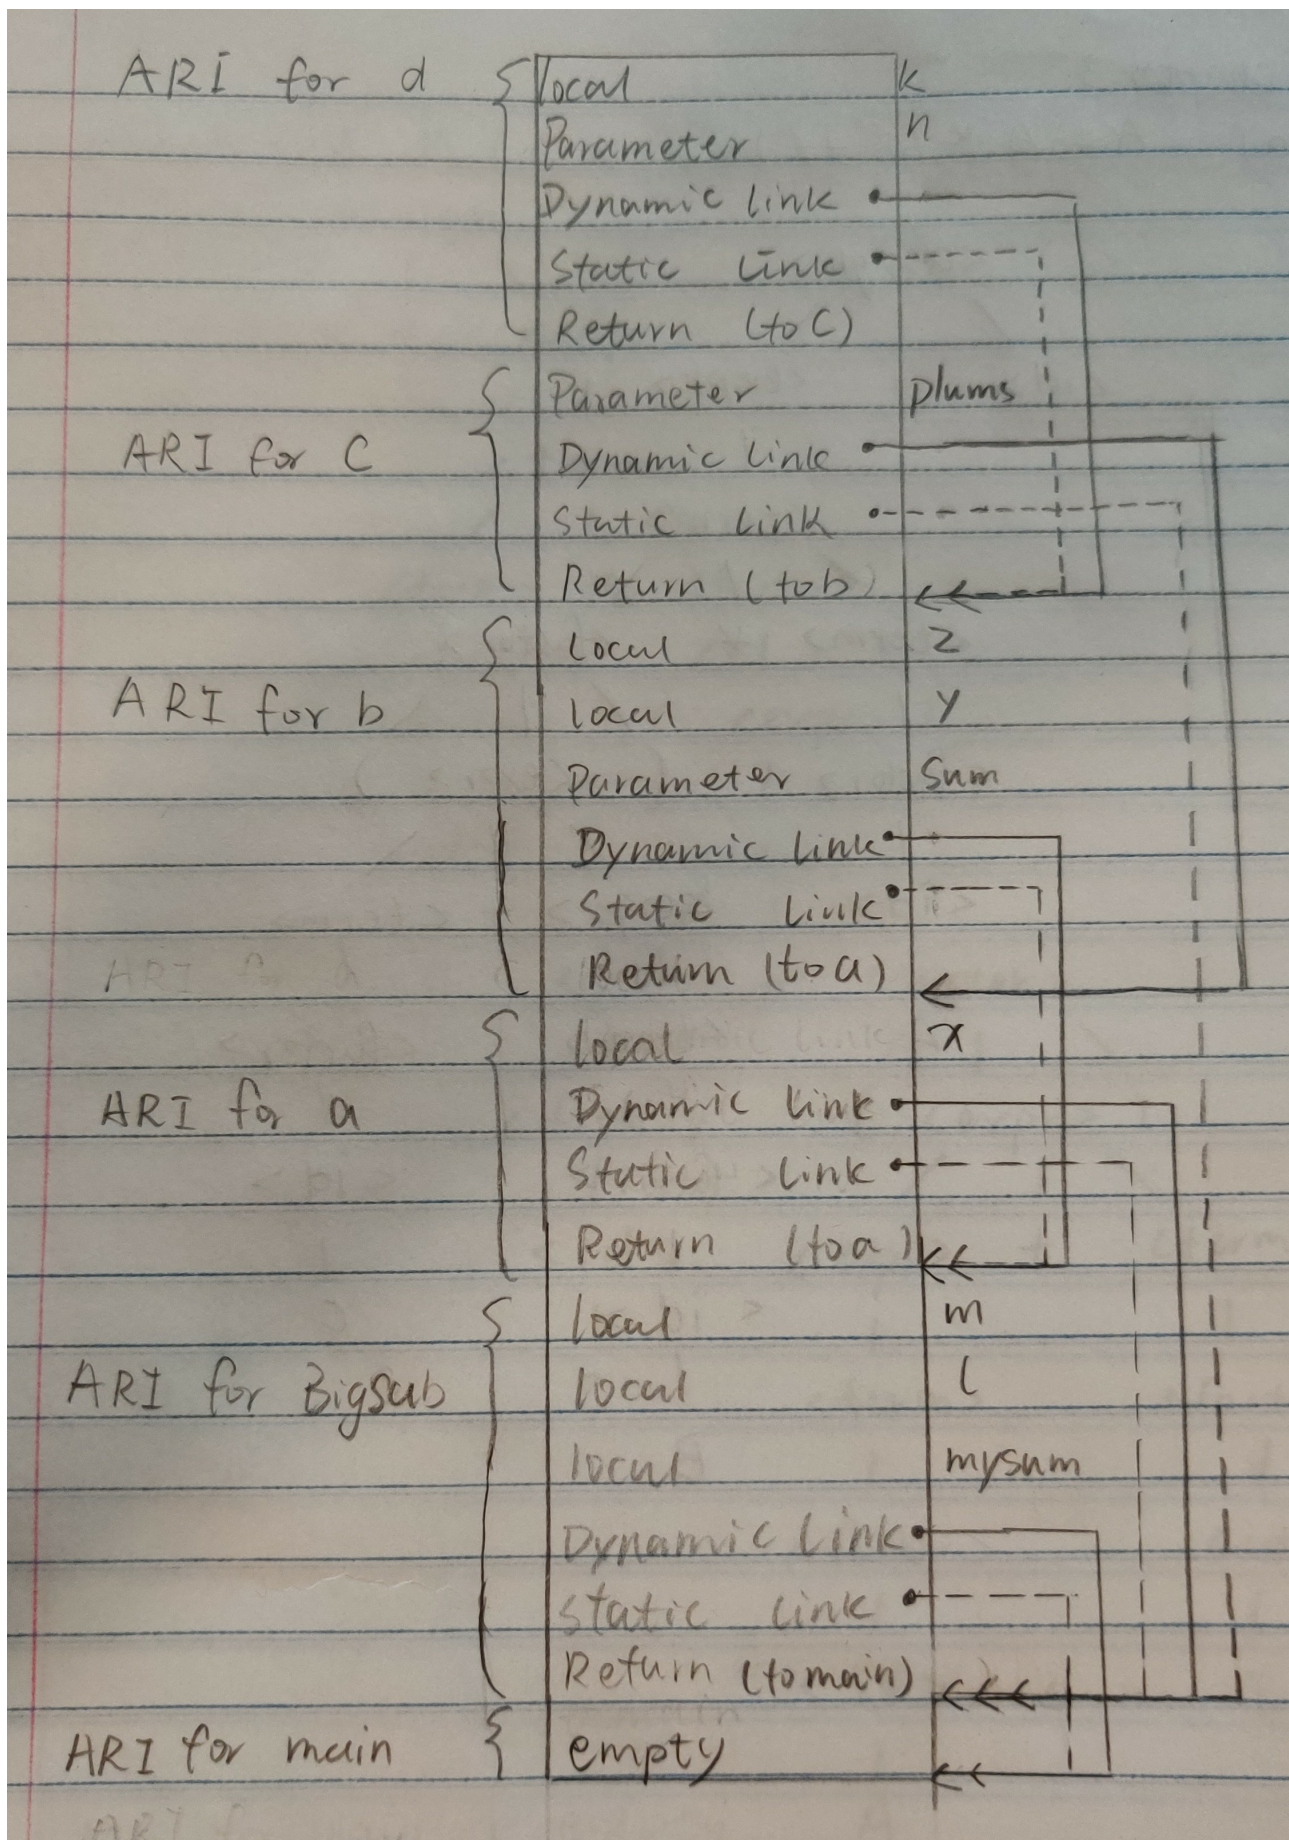 ARI for d
local k
Parameter n
Dynamic link
Static Link
Return (to C)
Parameter plums
ARI for C
Dynamic link
Static link
Return (to b)
local z
ARI for b
local y
Parameter Sum
Dynamic link
Static Link
Return (to a)
local x
ARI for a
Dynamic link
Static link
Return (to a)
local m
ARI for Bigsub
local l
local mysum
Dynamic Link
Static link
Return (to main)
ARI for main
empty